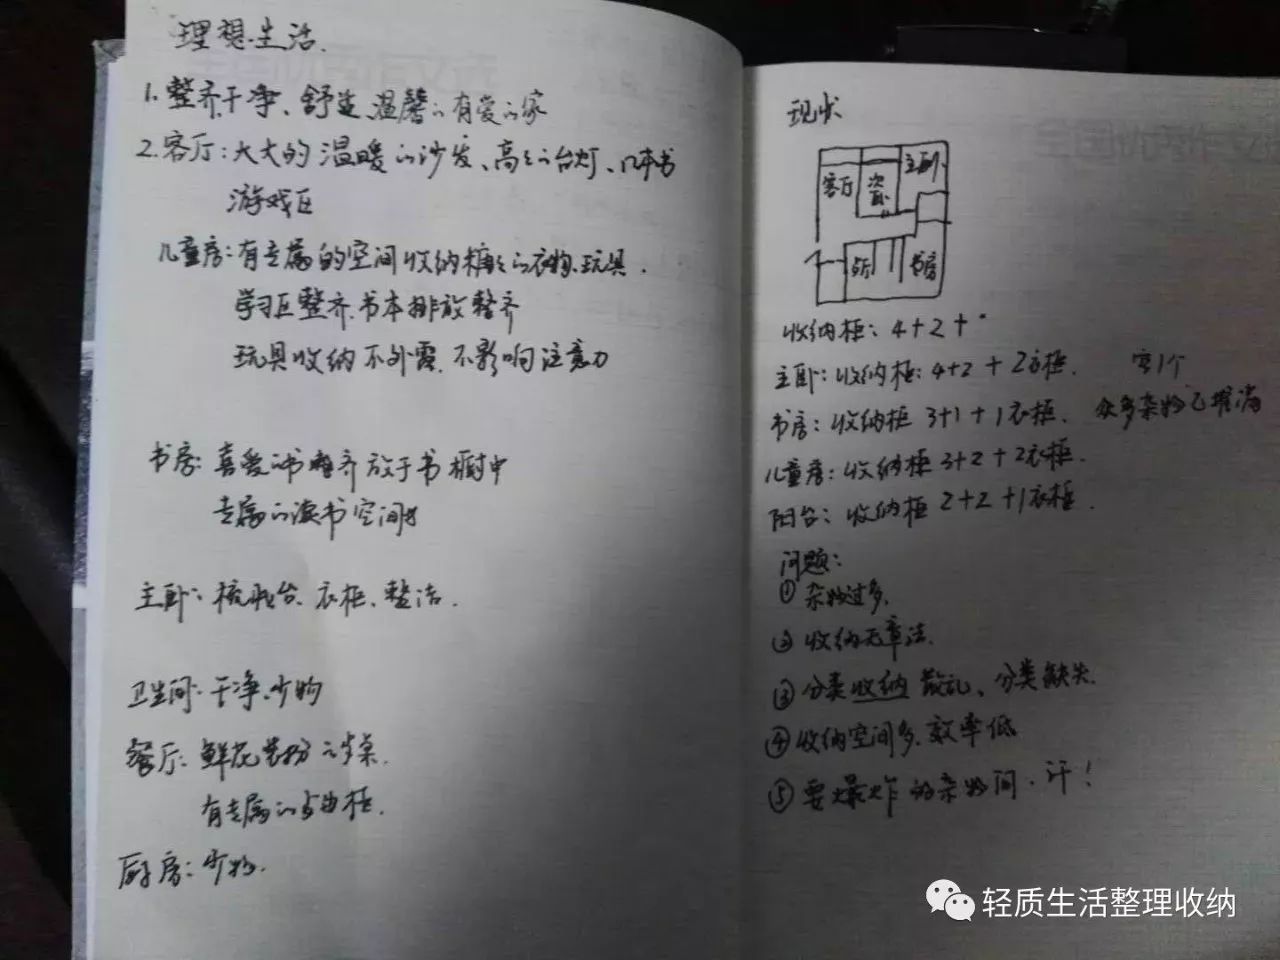 理想生活.
1. 整齐、干净、舒适、温馨的有爱的家
2. 客厅: 大大的温暖的沙发、高高的台灯、几本书
游戏区
儿童房: 有专属的空间收纳的衣物、玩具.
学习区整齐.书本排放整齐
玩具收纳不外露.不影响注意力
书房: 喜爱的书整齐放于书橱中
专属的读书空间
主卧: 梳妆台、衣柜、整洁.
卫生间: 干净、少物
餐厅: 鲜花装扮的餐桌.
有专属的边柜.
厨房: 少物.
现状
客厅 次卧 主卧
餐厅 书房
收纳柜: 4+2+
主卧: 收纳柜: 4+2+2衣柜. 空1个
书房: 收纳柜 3+1+1衣柜. 众多杂物已堆满
儿童房: 收纳柜 3+2+2衣柜.
阳台: 收纳柜 2+2+1衣柜.
问题:
① 杂物过多.
② 收纳无章法.
③ 分类收纳散乱、分类缺失.
④ 收纳空间多.效率低
⑤ 要爆炸的杂物间.汗!
轻质生活整理收纳